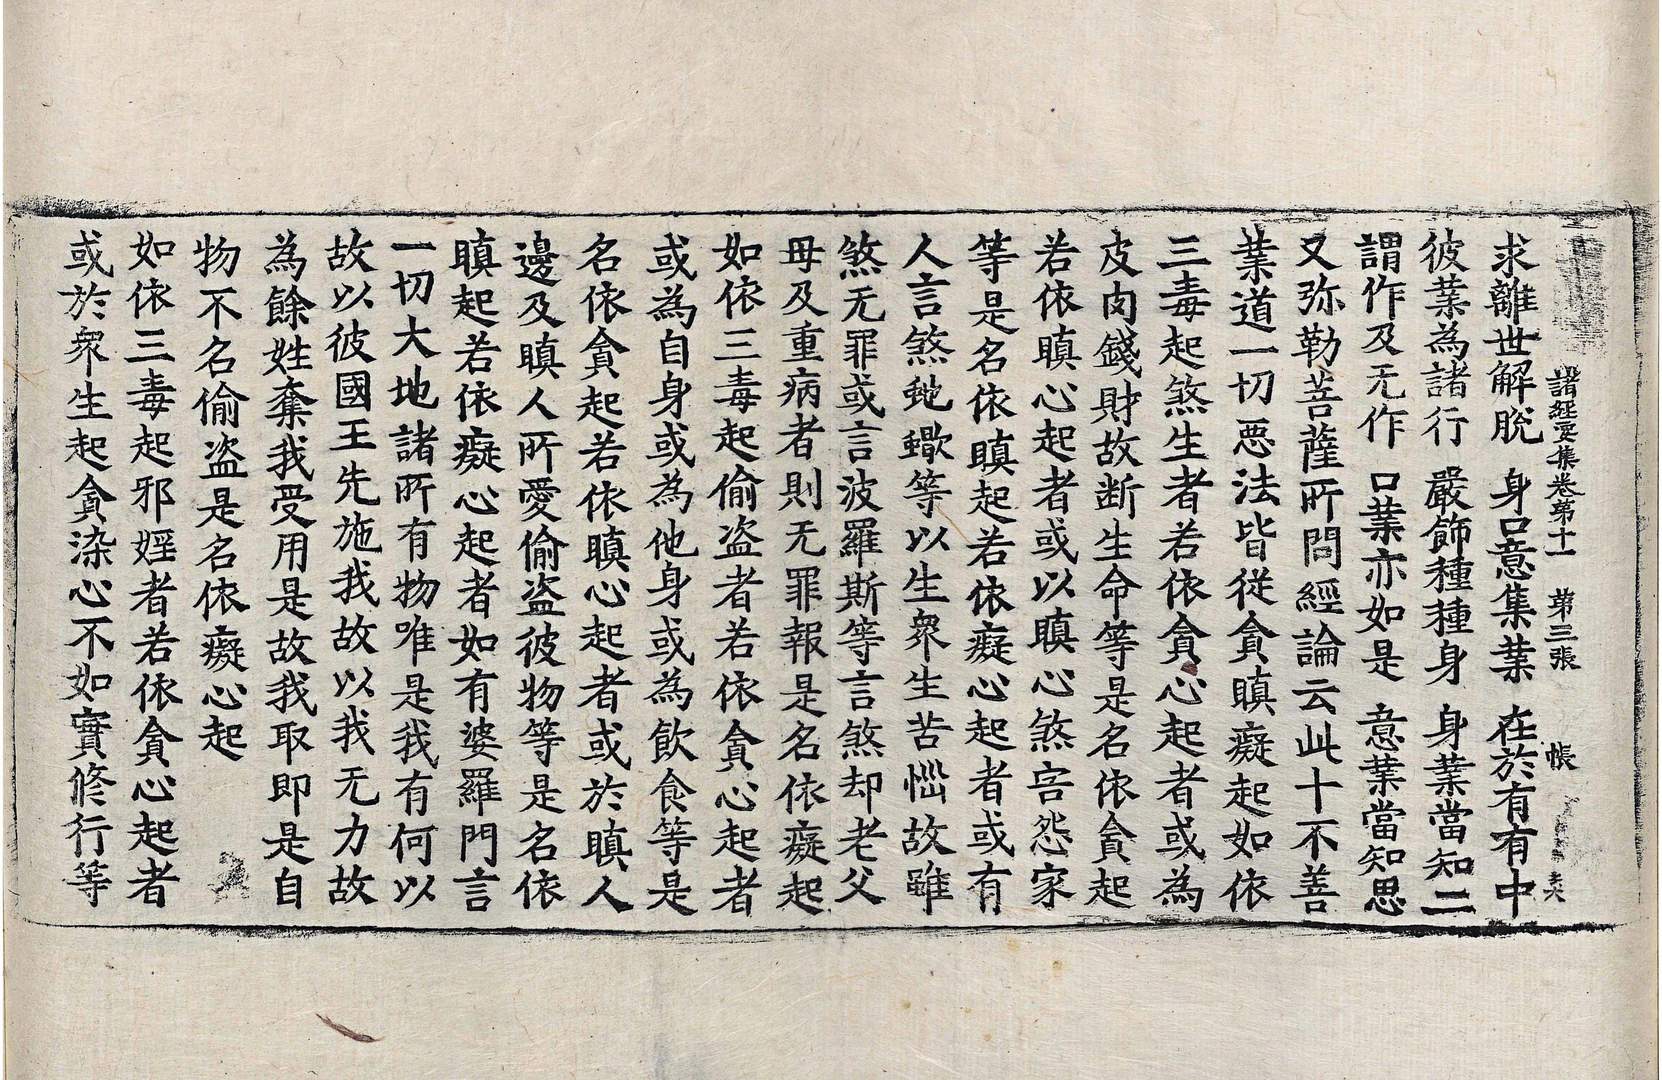 諸經要集卷第十一 第三張 帳
求離世解脫 身口意集業 在於有有中
彼業為諸行 嚴飾種種身 身業當知二
謂作及无作 口業亦如是 意業當知思
又弥勒菩薩所問經論云此十不善
業道一切惡法皆從貪瞋癡起如依
三毒起煞生者若依貪心起者或為
皮肉錢財故断生命等是名依貪起
若依瞋心起者或以瞋心煞害怨家
等是名依瞋起若依癡心起者或有
人言煞虵蠍等以生衆生苦惱故雖
煞无罪或言波羅斯等言煞却老父
母及重病者則无罪報是名依癡起
如依三毒起偷盗者若依貪心起者
或為自身或為他身或為飲食等是
名依貪起若依瞋心起者或於瞋人
邊及瞋人所愛偷盗彼物等是名依
瞋起若依癡心起者如有婆羅門言
一切大地諸所有物唯是我有何以
故以彼國王先施我故以我无力故
為餘姓奪我受用是故我取即是自
物不名偷盗是名依癡心起
如依三毒起邪婬者若依貪心起者
或於衆生起貪染心不如實修行等